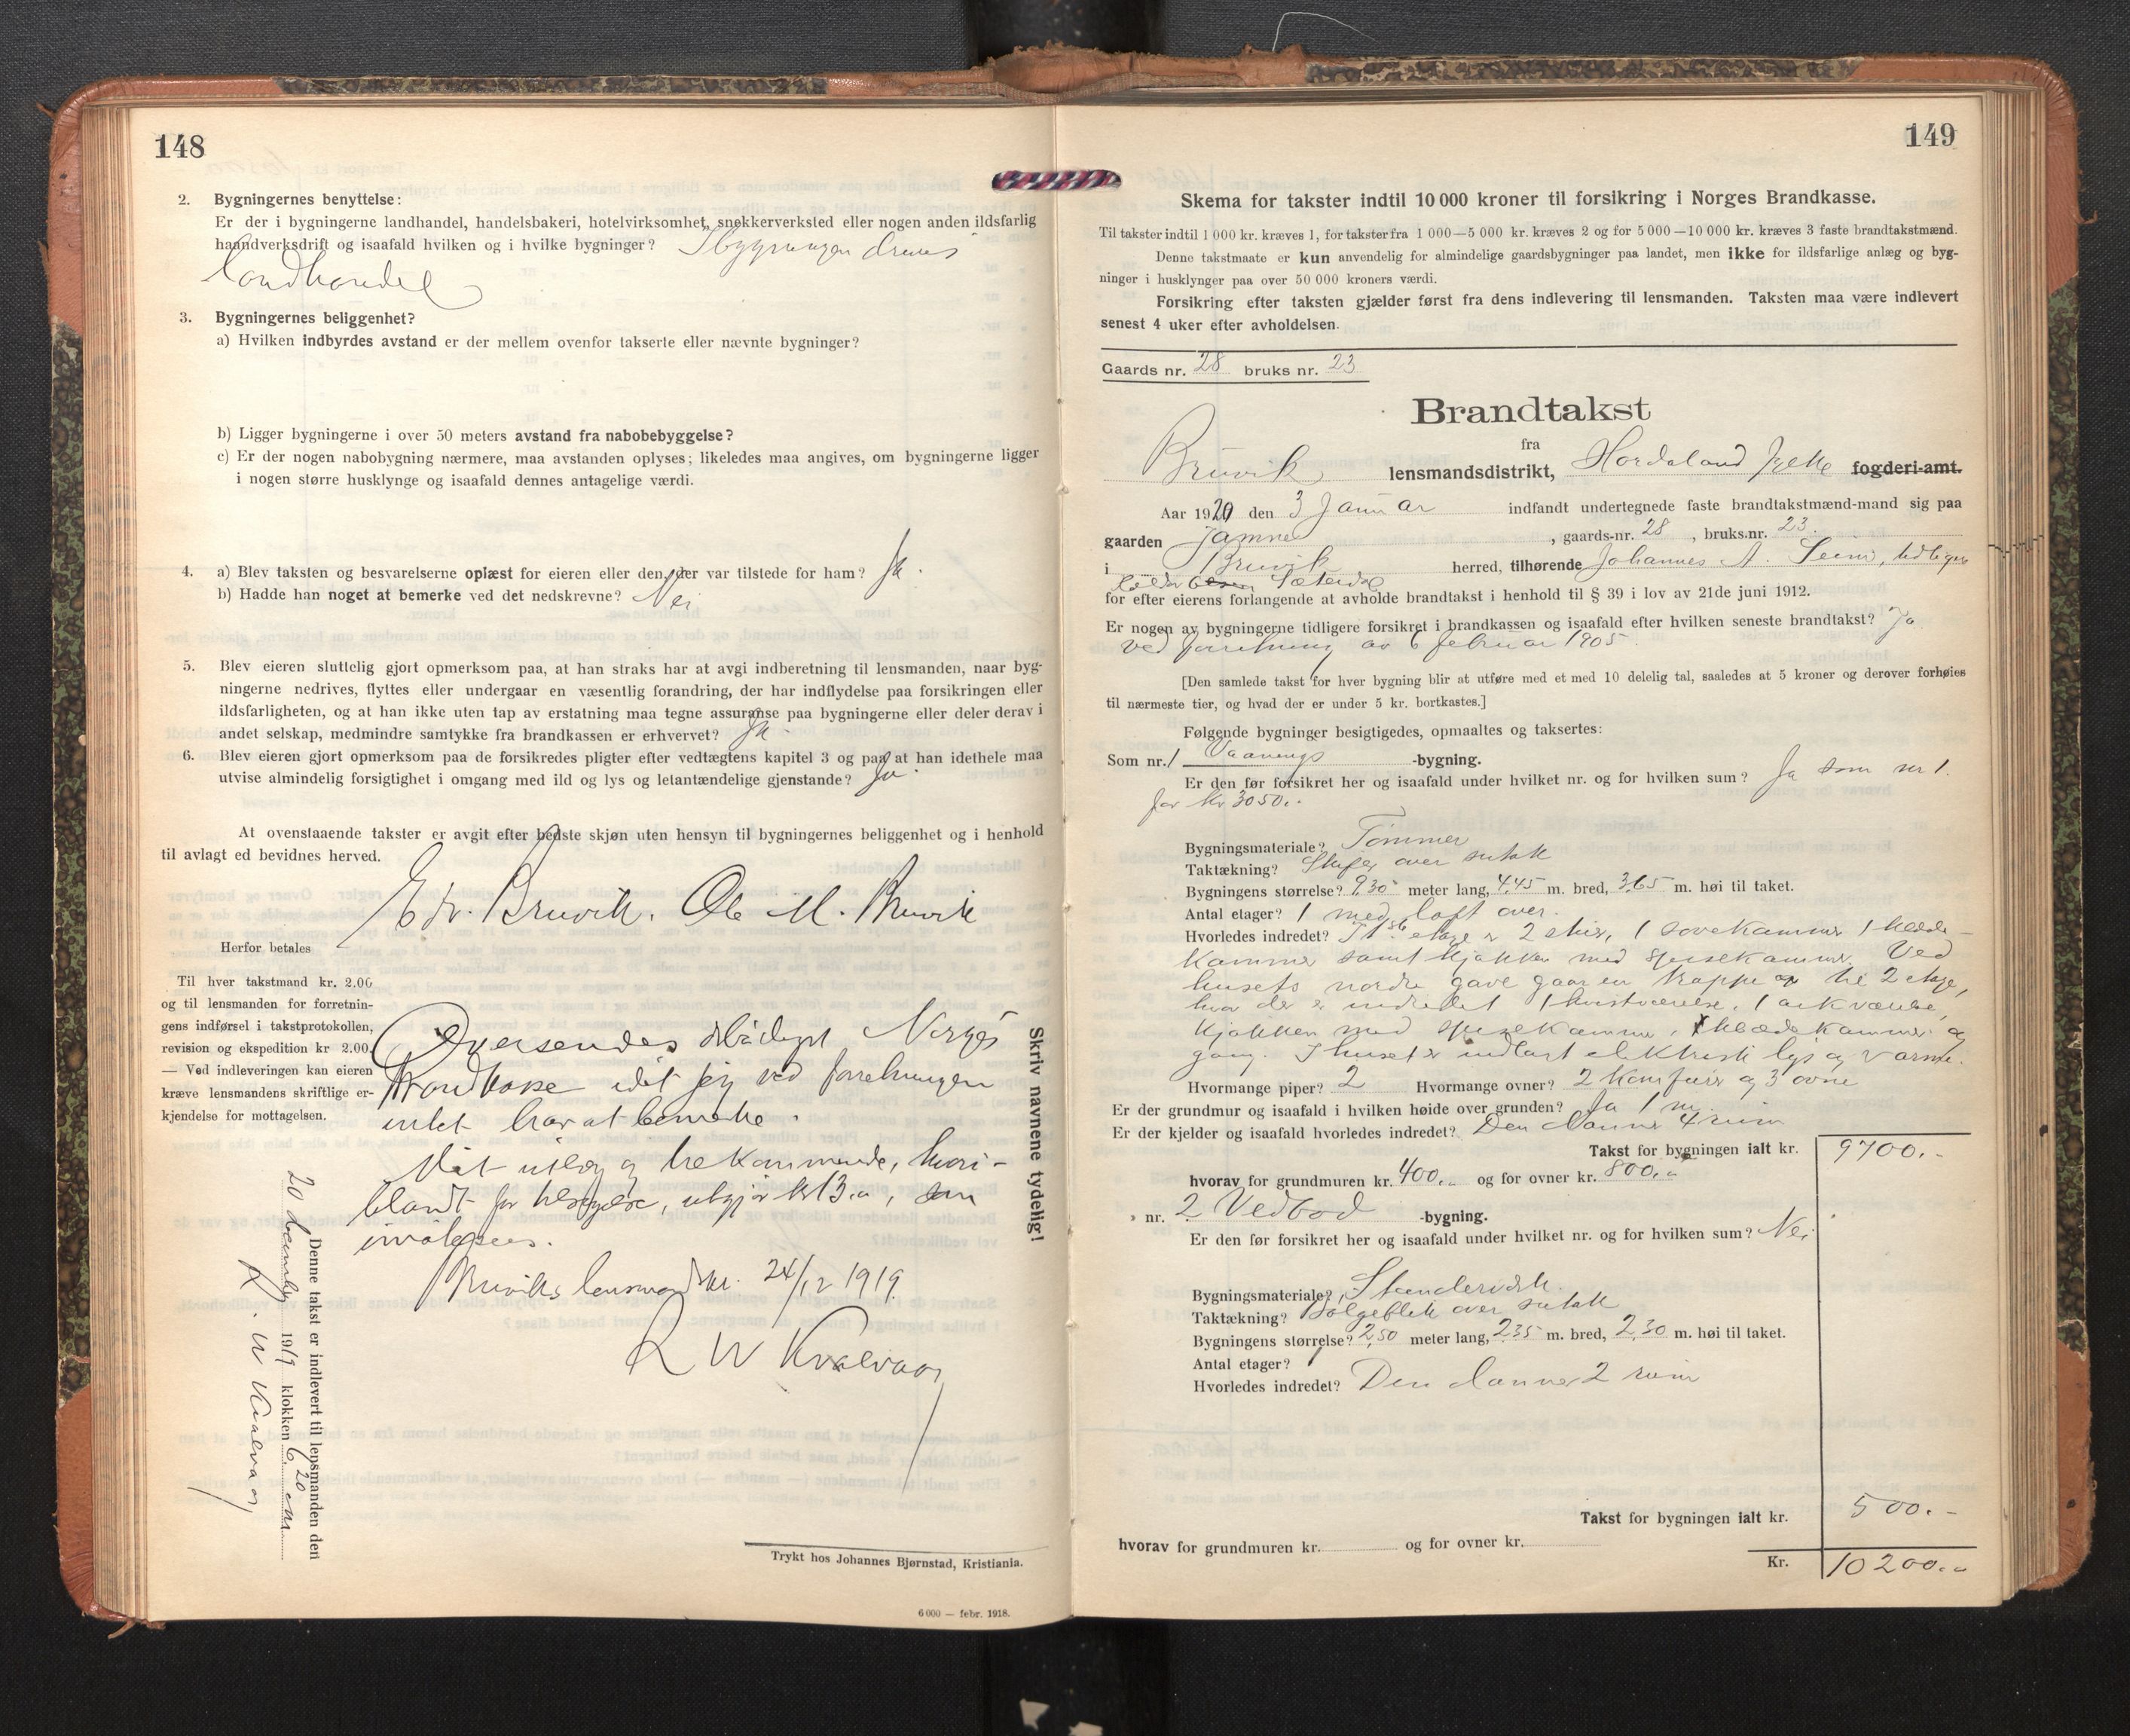 148
2. Bygningernes benyttelse:
Er der i bygningerne landhandel, handelsbakeri, hotelvirksomhet, snekkerverksted eller nogen anden ildsfarlig
haandverksdrift og isaafald hvilken og i hvilke bygninger? I bygningen drives
landhandel
3. Bygningernes beliggenhet?
a) Hvilken indbyrdes avstand er der mellem ovenfor takserte eller nævnte bygninger?
b) Ligger bygningerne i over 50 meters avstand fra nabobebyggelse?
c) Er der nogen nabobygning nærmere, maa avstanden oplyses; likeledes maa angives, om bygningerne ligger
i nogen større husklynge og isaafald dennes antagelige værdi.
4. a) Blev taksten og besvarelserne oplæst for eieren eller den, der var tilstede for ham? Ja.
b) Hadde han noget at bemerke ved det nedskrevne? Nei
5. Blev eieren sluttelig gjort opmerksom paa, at han straks har at avgi indberetning til lensmanden, naar byg-
ningerne nedrives, flyttes eller undergaar en væsentlig forandring, der har indflydelse paa forsikringen eller
ildsfarligheten, og at han ikke uten tap av erstatning maa tegne assuranse paa bygningerne eller deler derav i
andet selskap, medmindre samtykke fra brandkassen er erhvervet? Ja.
6. Blev eieren gjort opmerksom paa de forsikredes pligter efter vedtægtens kapitel 3 og paa at han idethele maa
utvise almindelig forsigtighet i omgang med ild og lys og letantændelige gjenstande? Ja.
At ovenstaaende takster er avgit efter bedste skjøn uten hensyn til bygningernes beliggenhet og i henhold
til avlagt ed bevidnes herved.
Edv. Bruvik. Ole M. Bruvik
Herfor betales
Til hver takstmand kr. 2.00
og til lensmanden for forretnin-
gens indførsel i takstprotokollen,
revision og ekspedition kr 2.00.
— Ved indleveringen kan eieren
kræve lensmandens skriftlige er-
kjendelse for mottagelsen.
Oversendes Norges
Brandkasse idet jeg ved forretningen
intet har at bemerke.
Mit utlæg og tilkommende, hvori-
blandt for utgjør kr 13.00, som
Bruviks lensmandskt. 24/12 1919.
R W Kvalvaag
Skriv navnene tydelig!
Denne takst er indlevert til lensmanden den
20 desember 1919 klokken 6,20 em
R. W Kvalvaag
Trykt hos Johannes Bjørnstad, Kristiania.
6 000 — febr. 1918.
149
Skema for takster indtil 10 000 kroner til forsikring i Norges Brandkasse.
Til takster indtil 1 000 kr. kræves 1, for takster fra 1 000—5 000 kr. kræves 2 og for 5 000—10 000 kr. kræves 3 faste brandtakstmænd.
Denne takstmaate er kun anvendelig for almindelige gaardsbygninger paa landet, men ikke for ildsfarlige anlæg og byg-
ninger i husklynger paa over 50 000 kroners værdi.
Forsikring efter taksten gjælder først fra dens indlevering til lensmanden. Taksten maa være indlevert
senest 4 uker efter avholdelsen.
Gaards nr. 28 bruks nr. 23
Brandtakst
fra
Bruvik lensmandsdistrikt, Hordaland fylke fogderi-amt.
Aar 1920 den 3 Januar indfandt undertegnede faste brandtakstmænd-mand sig paa
gaarden Jamne, gaards-nr. 28, bruks.nr. 23
i Bruvik herred, tilhørende Johannes A. Seim, tidligere
for efter eierens forlangende at avholde brandtakst i henhold til § 39 i lov av 21de juni 1912.
Er nogen av bygningerne tidligere forsikret i brandkassen og isaafald efter hvilken seneste brandtakst? Ja
ved forretning av 6 februar 1905.
[Den samlede takst for hver bygning blir at utføre med et med 10 delelig tal, saaledes at 5 kroner og derover forhøies
til nærmeste tier, og hvad der er under 5 kr. bortkastes.]
Følgende bygninger besigtigedes, opmaaltes og taksertes:
Som nr. 1 Vaanings -bygning.
Er den før forsikret her og isaafald under hvilket nr. og for hvilken sum? Ja som nr 1.
for kr 3050.-
Bygningsmateriale? Tømmer
Taktækning? Skifer over sutak
Bygningens størrelse? 9.30 meter lang, 4.45 m. bred, 3.65 m. høi til taket.
Antal etager? 1 med loft over.
Hvorledes indredet? I 1ste etage er 2 stuer, 1 sovekammer 1 klæde-
kammer samt kjøkken med spisekammer. Ved
husets nordre gavl gaar en trappe op til 2 etage,
hvor der er indredet 1 kvistværelse, 1 arkværelse,
kjøkken med spisekammer, klædekammer og
gang. I huset er indlagt elektrisk lys og varme.
Hvormange piper? 2 Hvormange ovner? 2 komfurer og 3 ovne
Er der grundmur og isaafald i hvilken høide over grunden? Ja 1 m.
Er der kjelder og isaafald hvorledes indredet? Den danner 4 rum
Takst for bygningen ialt kr. 9700.-
hvorav for grundmuren kr. 400.- og for ovner kr. 800.-
» nr. 2 Vedbod -bygning.
Er den før forsikret her og isaafald under hvilket nr. og for hvilken sum? Nei
Bygningsmateriale? Standerverk.
Taktækning? Bølgeblik over sutak
Bygningens størrelse? 2,50 meter lang, 2.35 m. bred, 2,30 m. høi til taket.
Antal etager? 1
Hvorledes indredet? Den danner 2 rum
Takst for bygningen ialt kr. 500.-
hvorav for grundmuren kr. og for ovner kr.
Kr. 10200.-